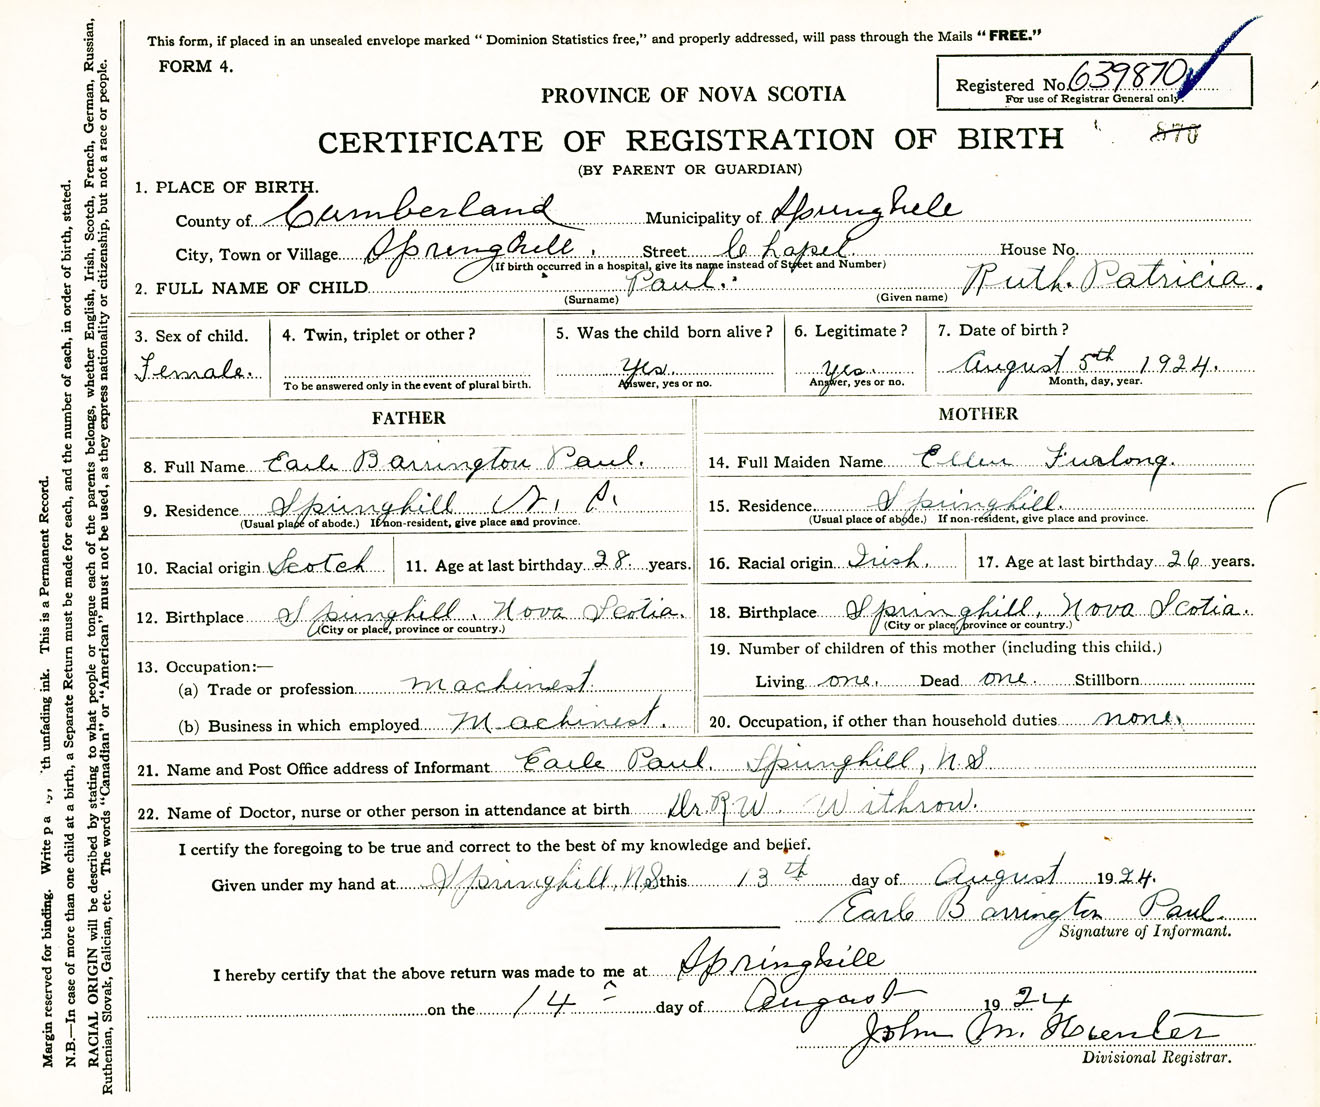 This form, if placed in an unsealed envelope marked " Dominion Statistics free," and properly addressed, will pass through the Mails "FREE."
FORM 4.
Registered No. 639870
For use of Registrar General only.
PROVINCE OF NOVA SCOTIA
870
CERTIFICATE OF REGISTRATION OF BIRTH
(BY PARENT OR GUARDIAN)
1. PLACE OF BIRTH.
County of Cumberland Municipality of Springhill
City, Town or Village Springhill. Street Chapel House No.
(If birth occurred in a hospital, give its name instead of Street and Number)
2. FULL NAME OF CHILD Paul. Ruth. Patricia.
(Surname) (Given name)
3. Sex of child. 4. Twin, triplet or other? 5. Was the child born alive? 6. Legitimate? 7. Date of birth?
Female. yes. yes. August 5th 1924.
To be answered only in the event of plural birth. Answer, yes or no. Answer, yes or no. Month, day, year.
FATHER
8. Full Name Earle Barrington Paul.
9. Residence Springhill N. S.
(Usual place of abode.) If non-resident, give place and province.
10. Racial origin Scotch 11. Age at last birthday 28 years.
12. Birthplace Springhill. Nova Scotia.
(City or place, province or country.)
13. Occupation:—
(a) Trade or profession machinest.
(b) Business in which employed Machinest.
MOTHER
14. Full Maiden Name Ellen Furlong.
15. Residence. Springhill.
(Usual place of abode.) If non-resident, give place and province.
16. Racial origin Irish. 17. Age at last birthday 26 years.
18. Birthplace Springhill, Nova Scotia.
(City or place, province or country.)
19. Number of children of this mother (including this child.)
Living one. Dead one. Stillborn
20. Occupation, if other than household duties none.
21. Name and Post Office address of Informant Earle Paul. Springhill, N.S
22. Name of Doctor, nurse or other person in attendance at birth Dr. R W. Withrow.
I certify the foregoing to be true and correct to the best of my knowledge and belief.
Given under my hand at Springhill, N.S this 13th day of August 1924.
Earle Barrington Paul.
Signature of Informant.
I hereby certify that the above return was made to me at Springhill
on the 14 day of August 1924
John M. Hunter
Divisional Registrar.
Margin reserved for binding. Write th unfading ink. This is a Permanent Record.
N.B.—In case of more than one child at a birth, a Separate Return must be made for each, and the number of each, in order of birth, stated.
RACIAL ORIGIN will be described by stating to what people or tongue each of the parents belongs, whether English, Irish, Scotch, French, German, Russian,
Ruthenian, Slovak, Galician, etc. The words "Canadian" or "American" must not be used, as they express nationality or citizenship, but not a race or people.